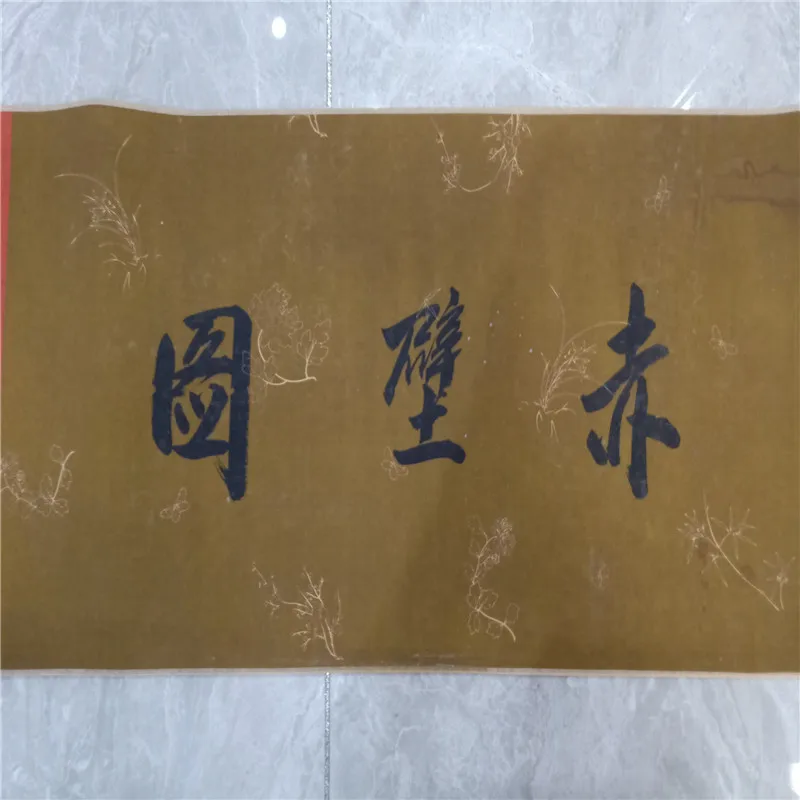 赤壁圖